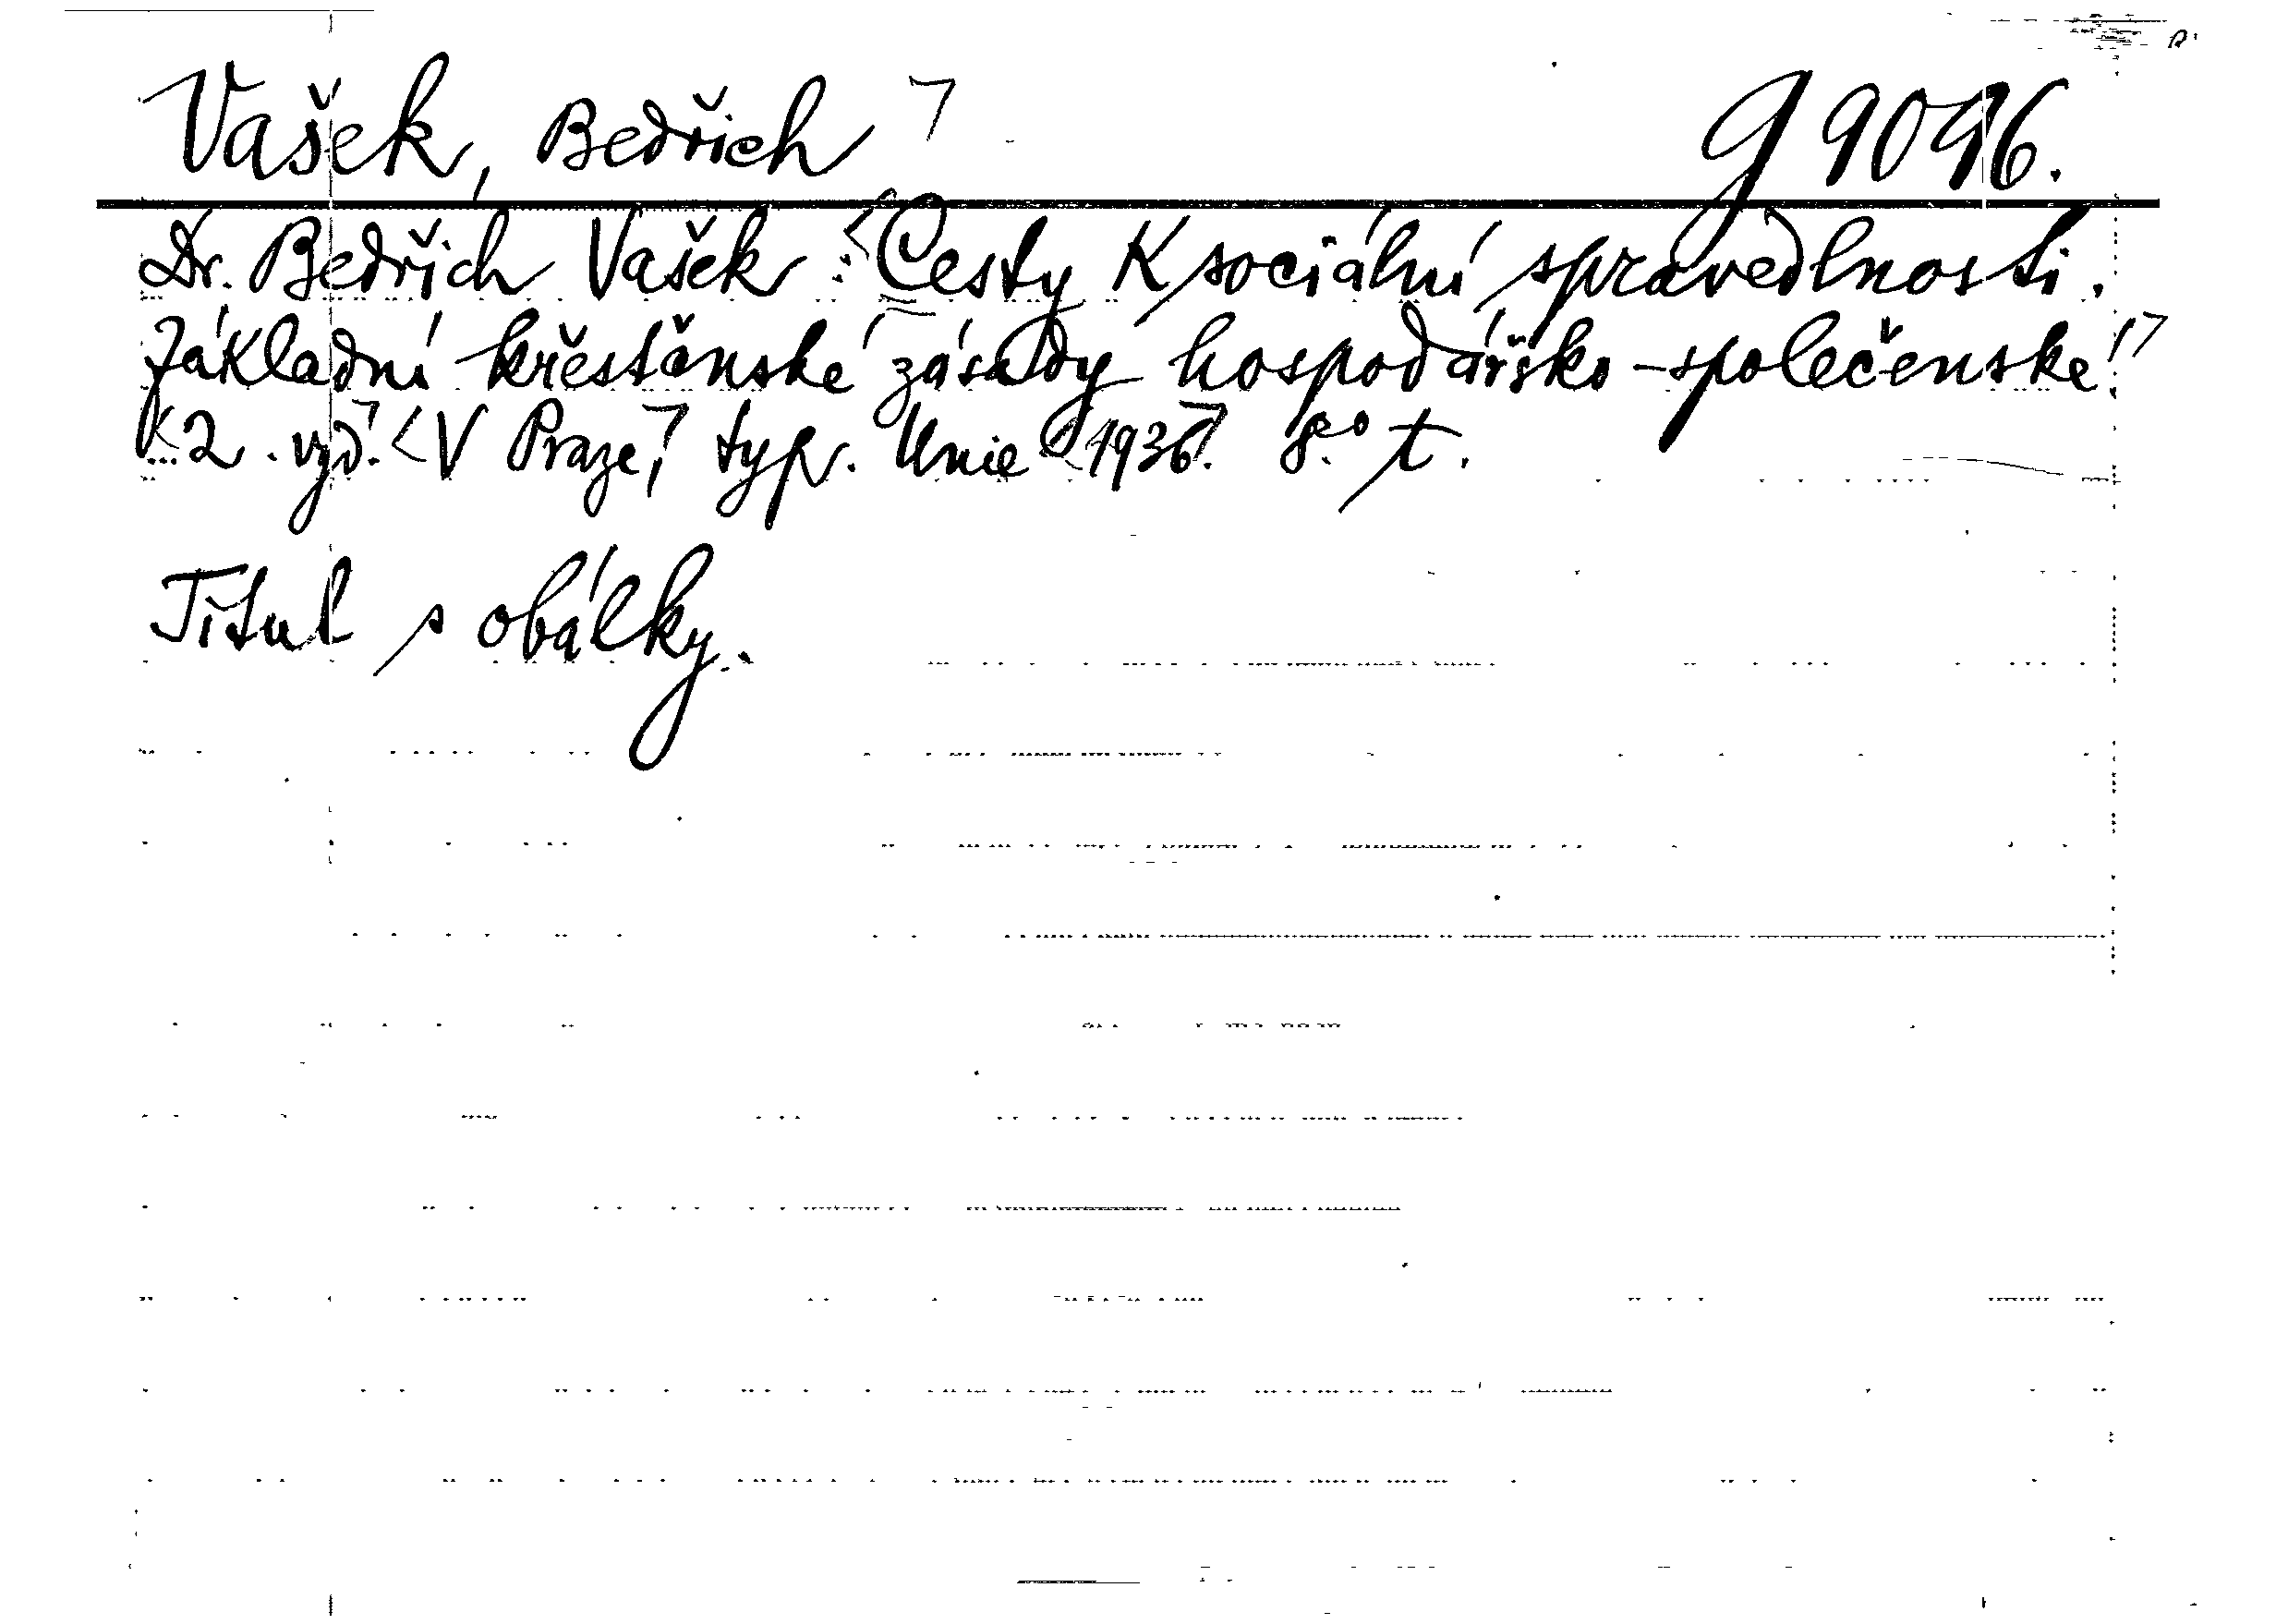 Vašek, Bedřich g 9096.
Dr. Bedřich Vašek : Cesty k sociální spravedlnosti.
Základní křesťanské zásady hospodářsko-společenské.
2. vyd. V Praze, typ. Unie 1936. 8° t.
Titul s obálky.